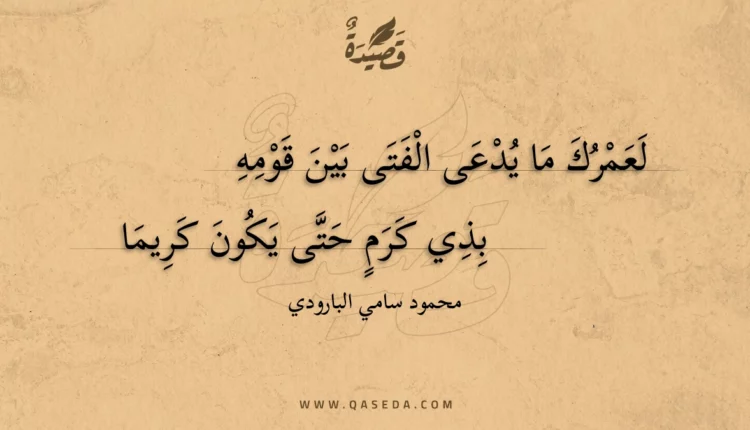 قَصِيدَةٌ
لَعَمْرُكَ مَا يُدْعَى الْفَتَى بَيْنَ قَوْمِهِ
بِذِي كَرَمٍ حَتَّى يَكُونَ كَرِيمَا
محمود سامي البارودي
WWW.QASEDA.COM